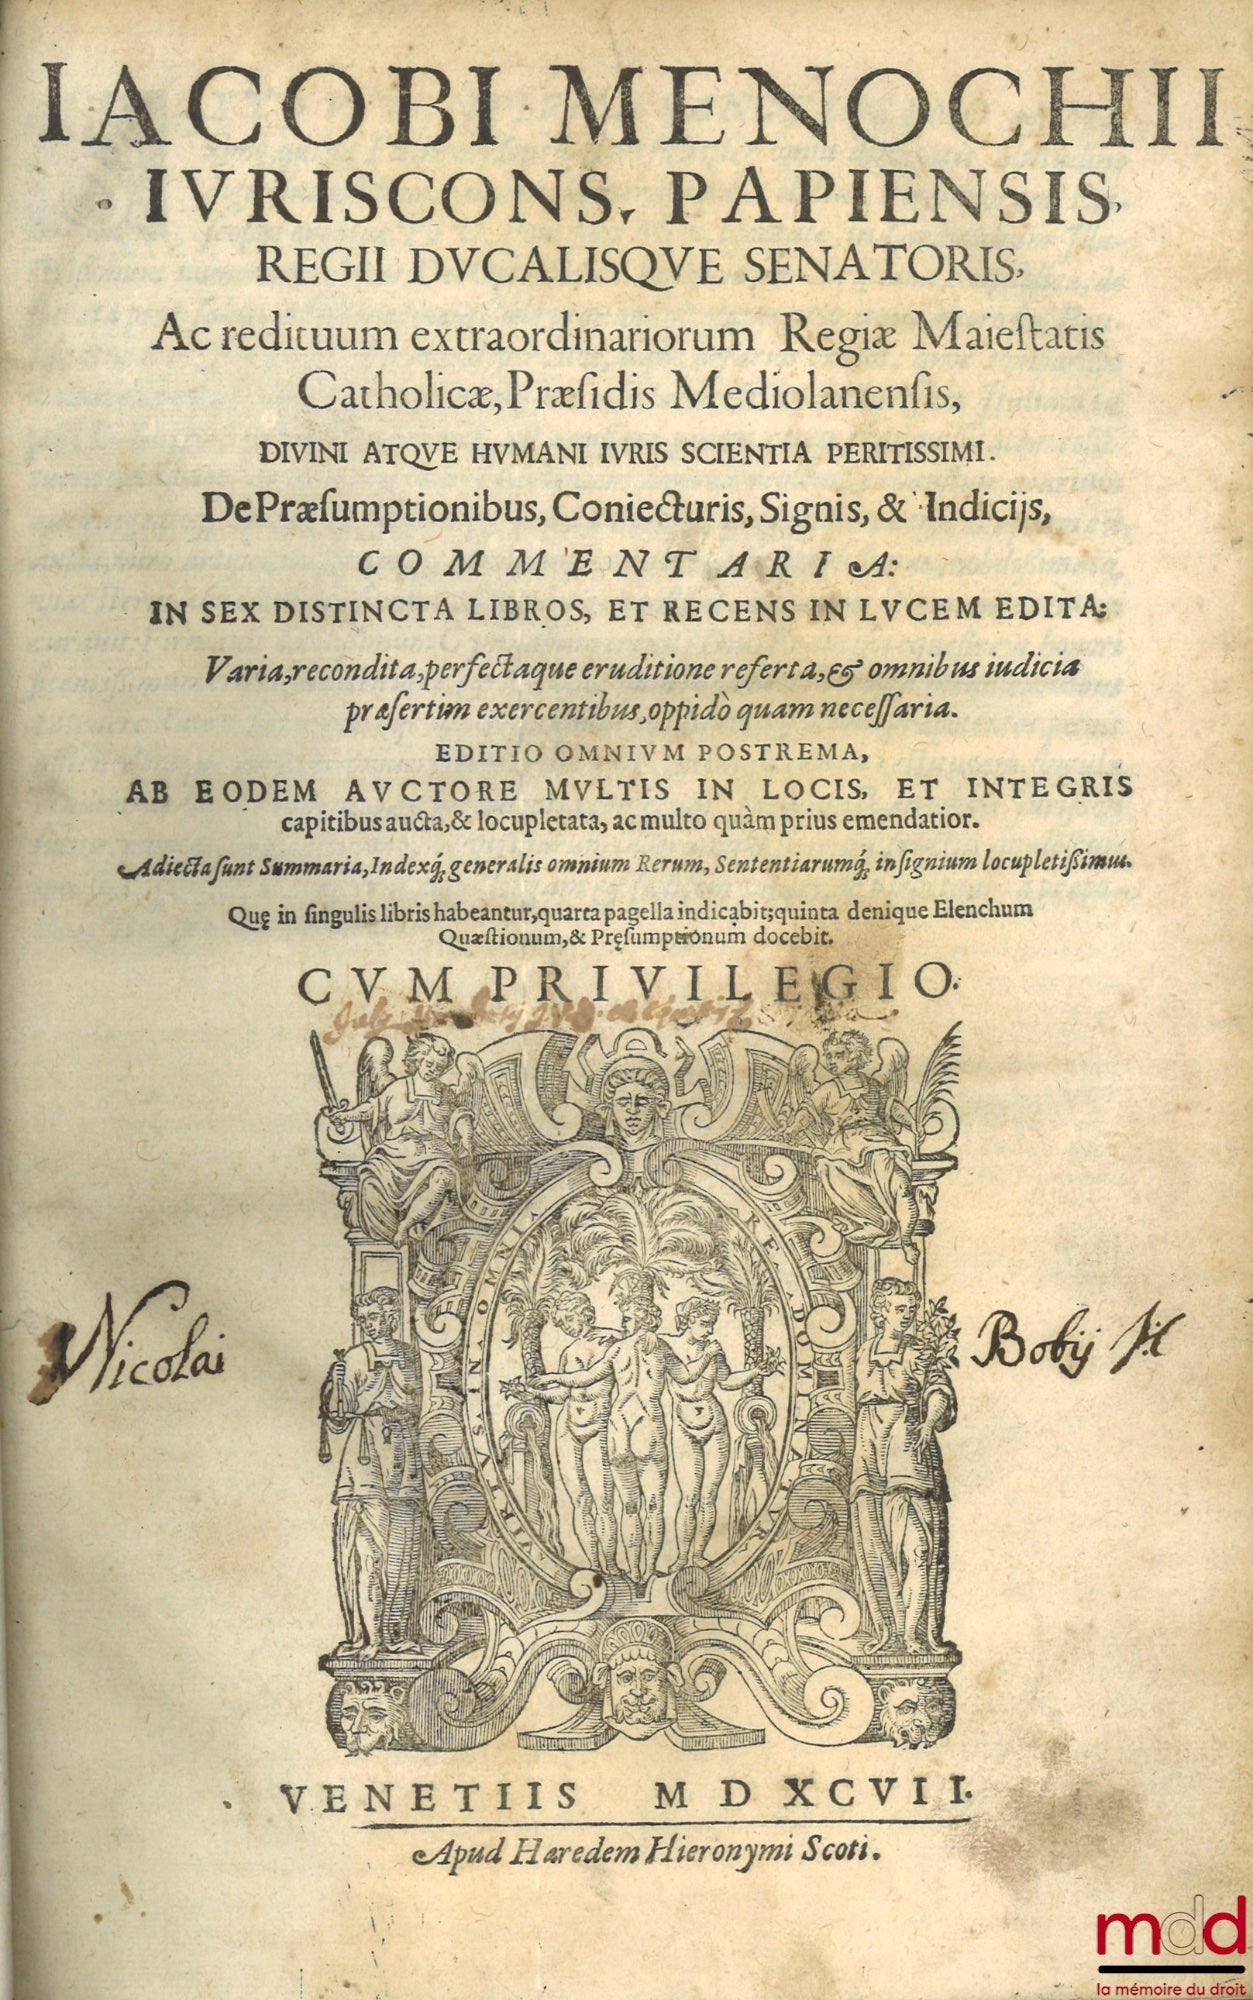 IACOBI MENOCHII
IVRISCONS. PAPIENSIS,
REGII DVCALISQVE SENATORIS,
Ac redituum extraordinariorum Regiæ Maieſtatis
Catholicæ, Præſidis Mediolanenſis,
DIVINI ATQVE HVMANI IVRIS SCIENTIA PERITISSIMI.
De Præſumptionibus, Coniecturis, Signis, & Indicijs,
COMMENTARIA:
IN SEX DISTINCTA LIBROS, ET RECENS IN LVCEM EDITA:
Varia, recondita, perfectaque eruditione referta, & omnibus iudicia
præſertim exercentibus, oppidò quam neceſſaria.
EDITIO OMNIVM POSTREMA,
AB EODEM AVCTORE MVLTIS IN LOCIS, ET INTEGRIS
capitibus aucta, & locupletata, ac multo quàm prius emendatior.
Adiecta ſunt Summaria, Indexq́; generalis omnium Rerum, Sententiarumq́; inſignium locupletiſsimus.
Quę in ſingulis libris habeantur, quarta pagella indicabit; quinta denique Elenchum
Quæſtionum, & Pręſumptionum docebit.
CVM PRIVILEGIO.
VIRTVS IN OMNI RE DOMINATVR
Nicolai
Bobij
VENETIIS MDXCVII.
Apud Hæredem Hieronymi Scoti.
mdd
la mémoire du droit